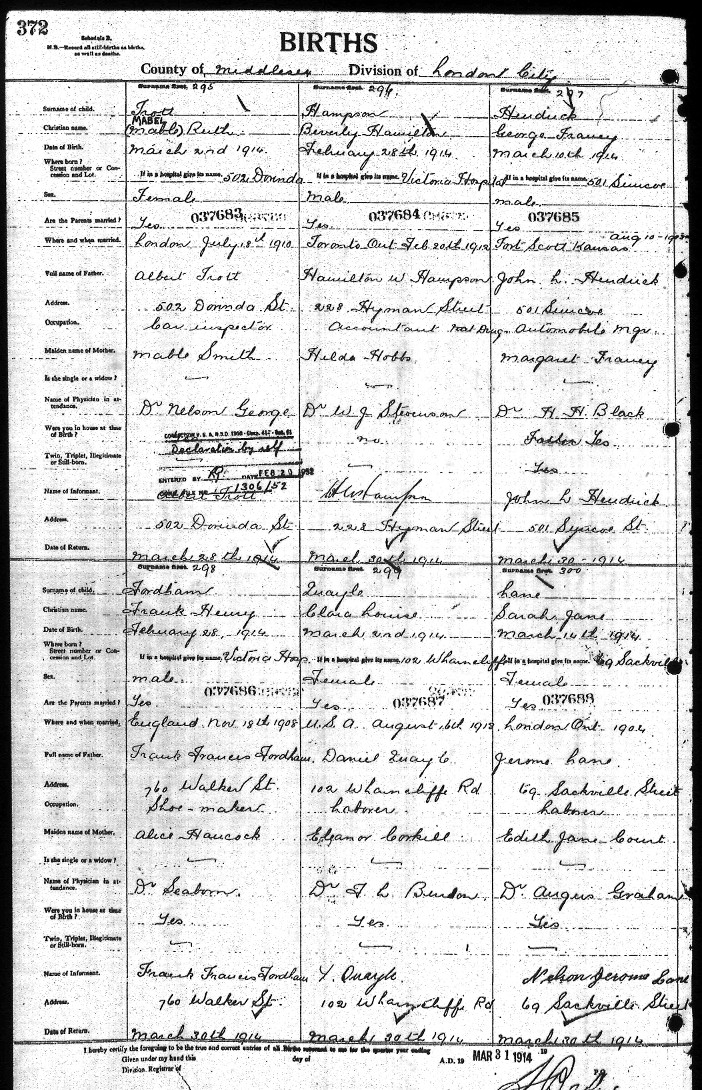 372
Schedule B.
N.B.—Record all still-births as births, as well as deaths.
BIRTHS
County of Middlesex Division of London City
295 296 297
Surname of child. Trott Hampson Hendrick
MABEL
Christian name. (Mable) Ruth Beverly Hamilton George Francy
Date of Birth. March 2nd 1914 February 28th 1914 March 10th 1914
Where born?
Street number or Concession and Lot. If in a hospital give its name. 502 Dorinda If in a hospital give its name. Victoria Hospital If in a hospital give its name. 501 Simcoe
Sex. Female Male male
037683 037684 037685
Are the Parents married? Yes Yes Yes
Where and when married. London July 18th 1910 Toronto Ont Feb 20th 1912 Fort Scott Kansas Aug 10-
Full name of Father. Albert Trott Hamilton W Hampson John L. Hendrick
Address. 502 Dorinda St. 228 Hyman Street 501 Simcoe
Occupation. Car inspector Accountant Automobile Mgr.
Maiden name of Mother. Mable Smith Hilda Hobbs Margaret Francy
Is she single or a widow?
Name of Physician in attendance. Dr Nelson George Dr W J Stevenson Dr H H Black
Were you in house at time of Birth? no. Father Yes
Declaration by self
Twin, Triplet, Illegitimate or Still-born. Yes
ENTERED BY DATE FEB 20 1952
1306/52
Name of Informant. Albert Trott John L Hendrick
Address. 502 Dorinda St. 228 Hyman Street 501 Simcoe St.
Date of Return. March 28th 1914 March 30th 1914 March 30-1914
298 299 300
Surname of child. Fordham Quayle Lane
Christian name. Frank Henry Clara Louise Sarah Jane
Date of Birth. February 28, 1914 March 2nd 1914 March 14th 1914
Where born?
Street number or Concession and Lot. If in a hospital give its name. Victoria Hosp. If in a hospital give its name. 102 Wharncliffe If in a hospital give its name. 69 Sackville
Sex. male Female Female
037686 037687 037688
Are the Parents married? Yes Yes Yes
Where and when married. England Nov 18th 1908 U.S.A. August 16th London Ont 1904
Full name of Father. Frank Francis Fordham Daniel Quayle Jerome Lane
Address. 760 Walker St. 102 Wharncliffe Rd 69 Sackville Street
Occupation. Shoe-maker Laborer Laborer
Maiden name of Mother. Alice Hancock Eleanor Corkill Edith Jane Court
Is she single or a widow?
Name of Physician in attendance. Dr Seaborn. Dr Dr Angus Graham
Were you in house at time of Birth? Yes Yes Yes
Twin, Triplet, Illegitimate or Still-born.
Name of Informant. Frank Francis Fordham Quayle Nelson Jerome Lane
Address. 760 Walker St. 102 Wharncliffe Rd 69 Sackville Street
Date of Return. March 30th 1914 March 30th 1914 March 30th 1914
I hereby certify the foregoing to be the true and correct entries of all Births returned to me for the quarter year ending
Given under my hand this day of A.D. 19 MAR 31 1914
Division Registrar of